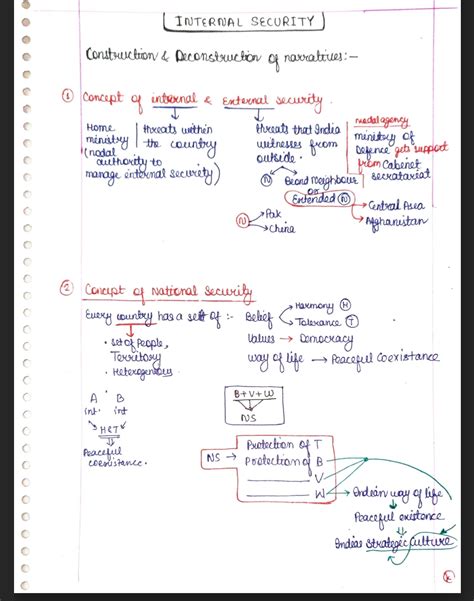 INTERNAL SECURITY
Construction & Deconstruction of narratives:-
① Concept of internal & External security.
Home ministry (nodal authority to manage internal security)
threats within the country
threats that India witnesses from outside.
nodal agency
ministry of Defence gets support from Cabenet secratariat
N
Beond Neighbour or Extended N
Central Asia
Afghanistan
N
Pak
China
② Concept of National Security
Every country has a set of :-
Belief
Harmony H
Tolerance T
Values → Democracy
way of life → Peaceful Coexistance
• Set of People, Territory
• Heterogenous
A B
int. int
H&T
Peaceful coexistance.
B+V+W
NS
NS →
Protection of T
Protection of B
V
W
Indian way of life
Peaceful existance
Indias strategic culture
K